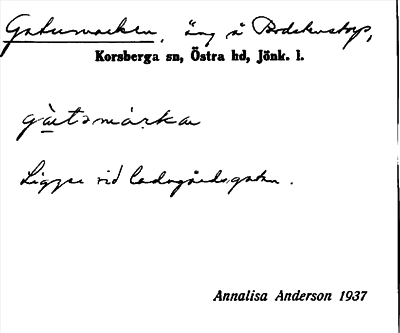 Gatumarken, äng å Bodekustorp,
Korsberga sn, Östra hd, Jönk. l.
gàtsmárkan
Ligger vid ladugårdsgatan.
Annalisa Anderson 1937